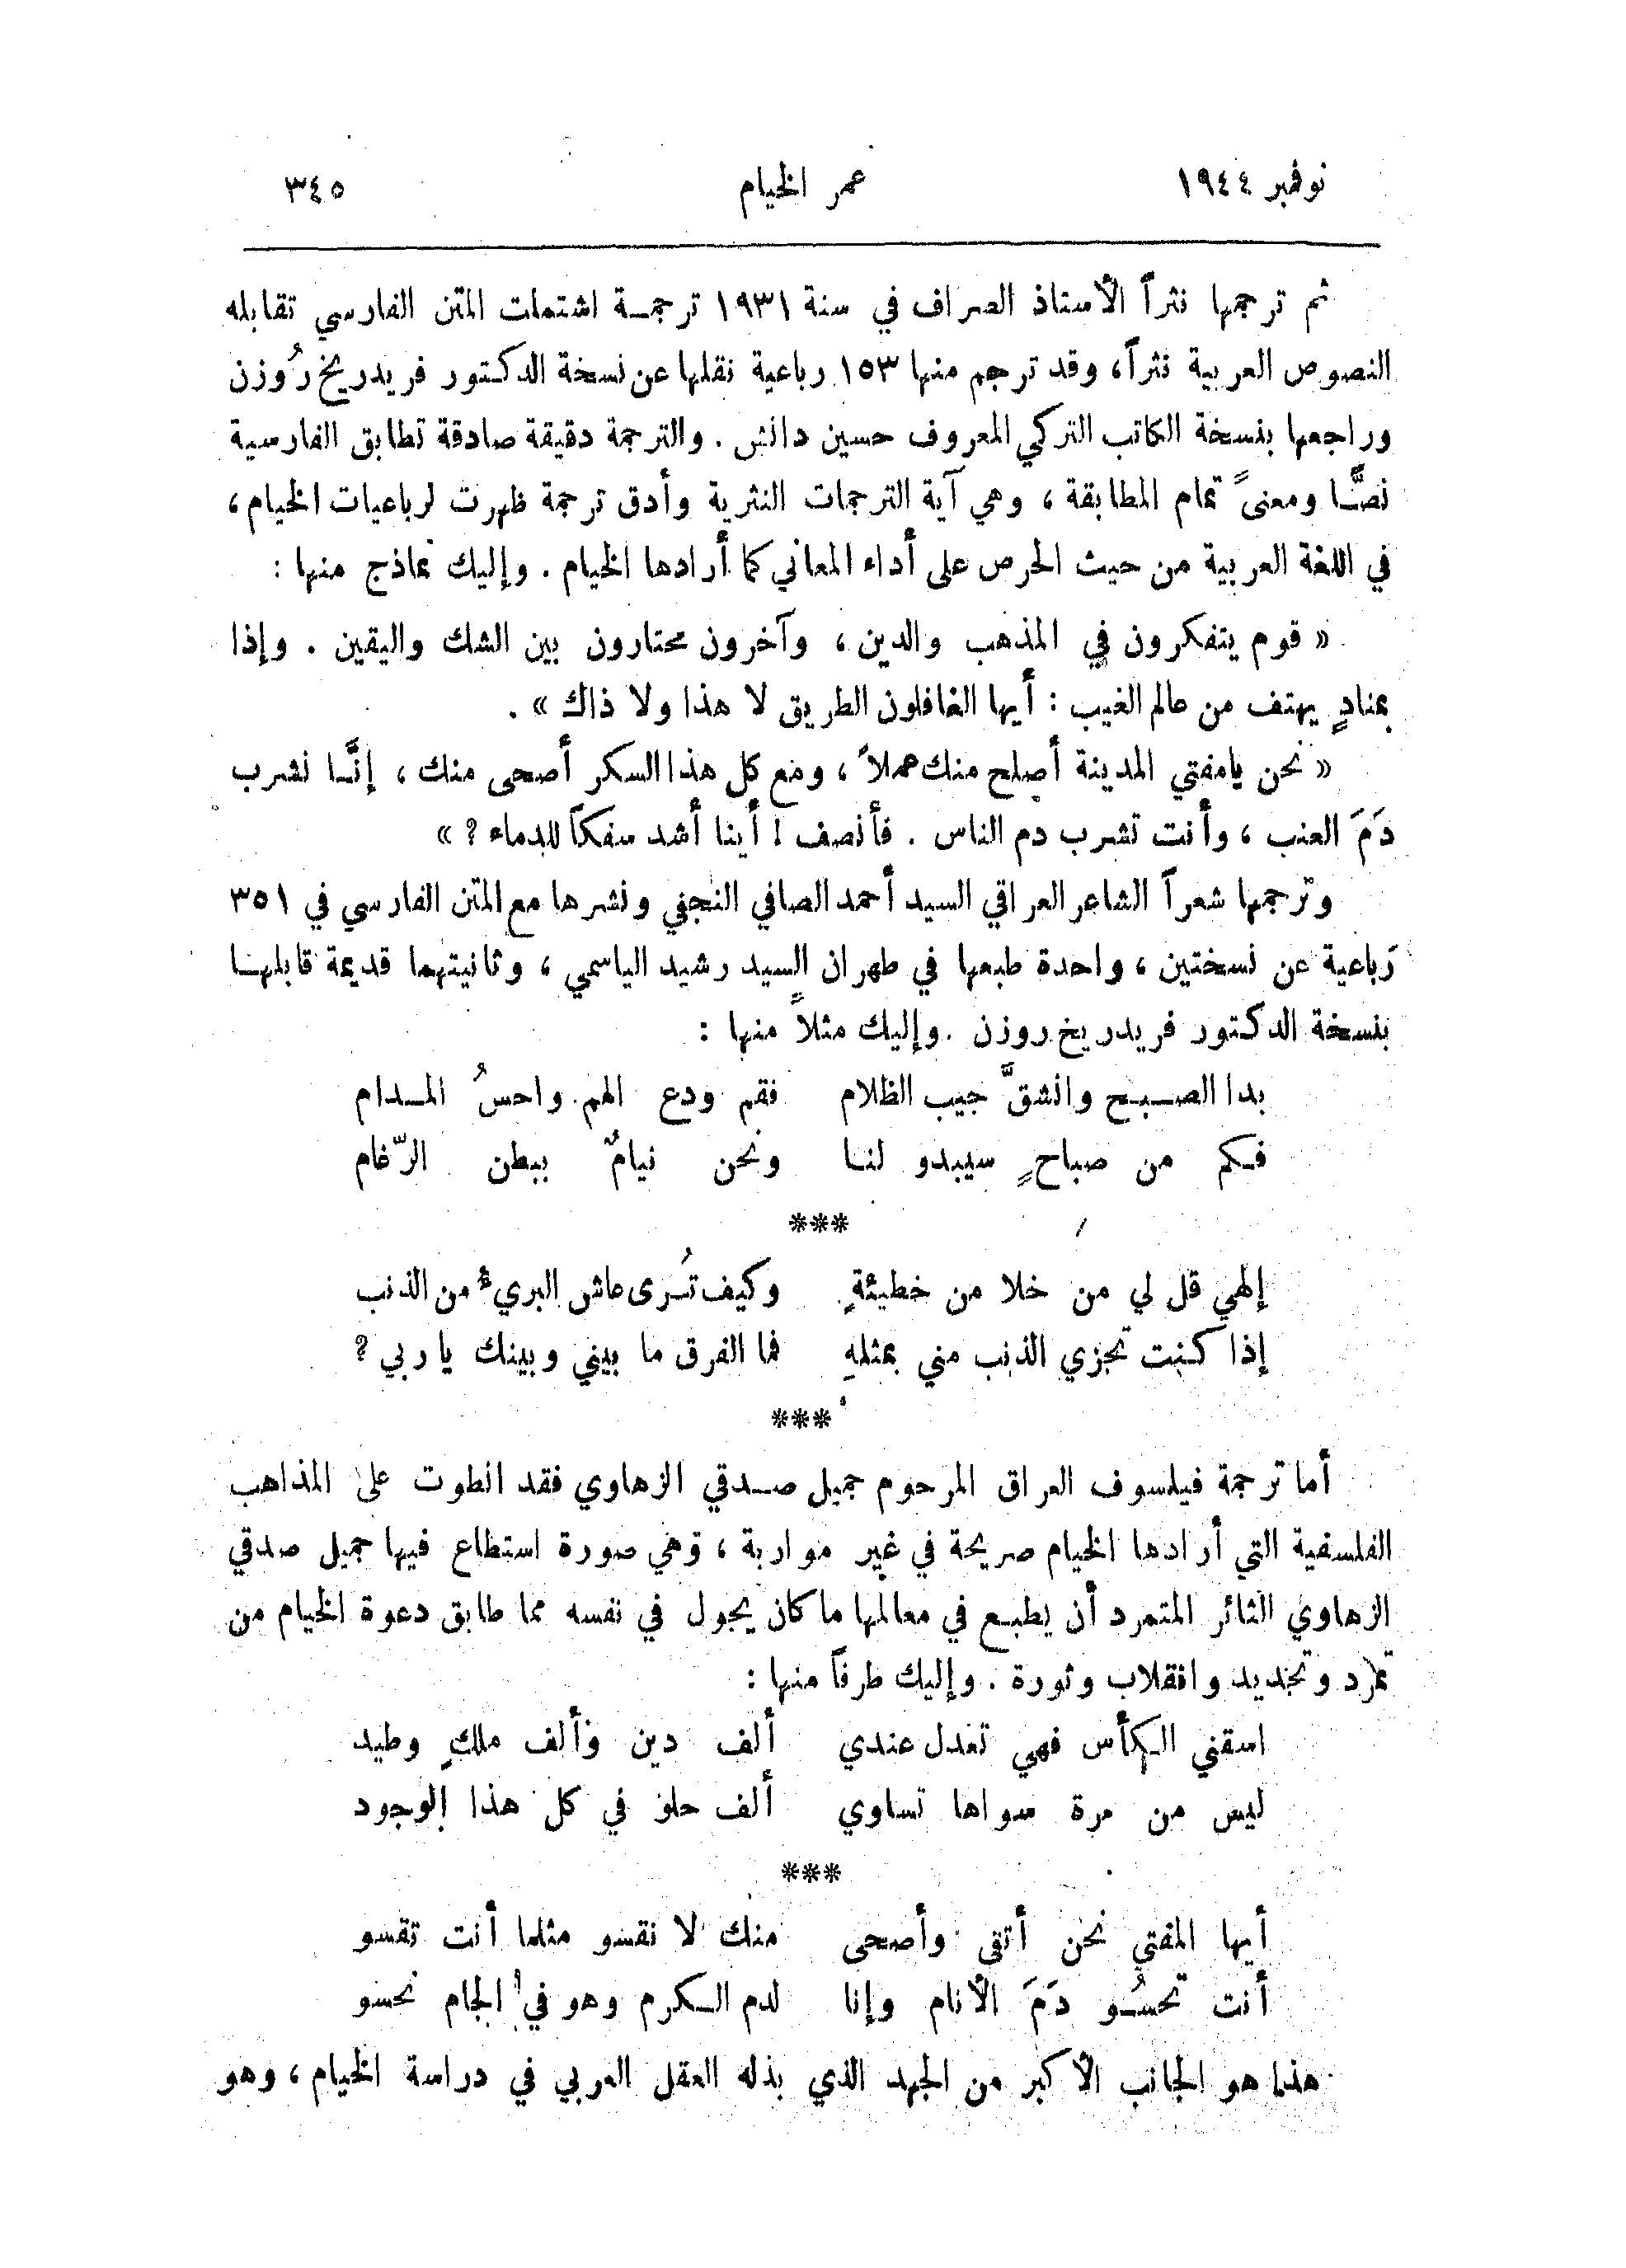 نوفمبر ١٩٤٤ عمر الخيام ٣٤٥
ثم ترجمها نثراً الأستاذ الصراف في سنة ١٩٣١ ترجمة اشتملت المتن الفارسي تقابله
النصوص العربية نثراً، وقد ترجم منها ١٥٣ رباعية نقلها عن نسخة الدكتور فريدريخ رُوزن
وراجعها بنسخة الكاتب التركي المعروف حسين دانش . والترجمة دقيقة صادقة تطابق الفارسية
نصًّا ومعنىً تمام المطابقة ، وهي آية الترجمات النثرية وأدق ترجمة ظهرت لرباعيات الخيام ،
في اللغة العربية من حيث الحرص على أداء المعاني كما أرادها الخيام . وإليك نماذج منها :
« قوم يتفكرون في المذهب والدين ، وآخرون محتارون بين الشك واليقين . وإذا
بمنادٍ يهتف من عالم الغيب : أيها الغافلون الطريق لا هذا ولا ذاك » .
« نحن يا مفتي المدينة أصلح منك عملاً ، ومع كل هذا السكر أصحى منك ، إنَّا نشرب
دَمَ العنب ، وأنت تشرب دم الناس . فأنصف ! أينا أشد سفكاً للدماء ؟ »
وترجمها شعراً الشاعر العراقي السيد أحمد الصافي النجفي ونشرها مع المتن الفارسي في ٣٥١
رباعية عن نسختين ، واحدة طبعها في طهران السيد رشيد الياسمي ، وثانيتهما قديمة قابلها
بنسخة الدكتور فريدريخ روزن . وإليك مثلاً منها :
بدا الصبح وانشقَّ جيب الظلام فقم ودع الهم واحسُ المدام
فكم من صباحٍ سيبدو لنا ونحن نيامٌ ببطن الرّغام
***
إلهي قل لي من خلا من خطيئةٍ وكيف تُرى عاش البريءُ من الذنب
إذا كنت تجزي الذنب مني بمثلهِ فما الفرق ما بيني وبينك يا ربي ؟
***
أما ترجمة فيلسوف العراق المرحوم جميل صدقي الزهاوي فقد انطوت على المذاهب
الفلسفية التي أرادها الخيام صريحة في غير مواربة ، وهي صورة استطاع فيها جميل صدقي
الزهاوي الثائر المتمرد أن يطبع في معالمها ما كان يجول في نفسه مما طابق دعوة الخيام من
تمرد وتجديد وانقلاب وثورة . وإليك طرفاً منها :
اسقني الكأس فهي تعدل عندي ألف دين وألف ملكٍ وطيد
ليس من مرة سواها تساوي ألف حلو في كل هذا الوجود
***
أيها المفتي نحن أتقى وأصحى منك لا نقسو مثلما أنت تقسو
أنت تحسُو دَمَ الأنام وإنا لدم الكرم وهو في الجام نحسو
هذا هو الجانب الأكبر من الجهد الذي بذله العقل العربي في دراسة الخيام ، وهو